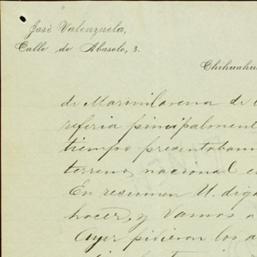 José Valenzuela,
Calle de Abasolo, 3.
Chihuahu
de Marinilarena de
referia principalment
tiempo presentaban
terreno nacional e
En resumen U. diga
hacer, y vamos a
Ayer pidieron los